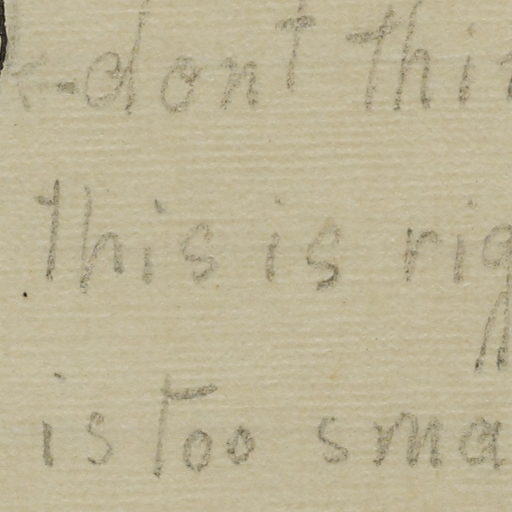 - dont thi
this is rig
is too sma